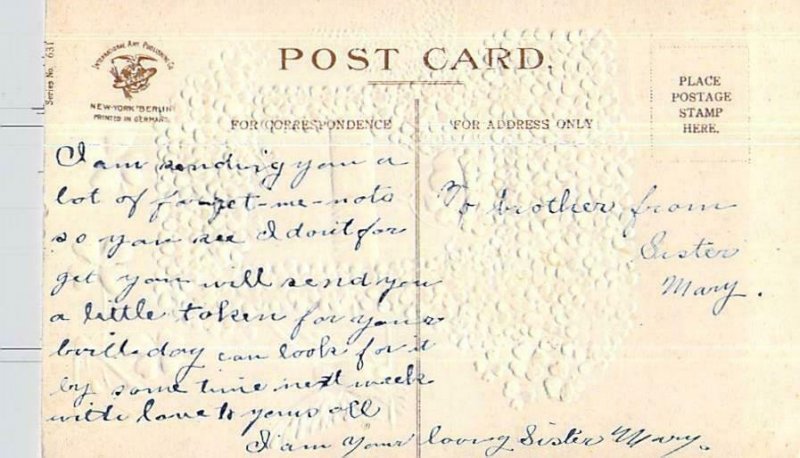 POST CARD.
Series No. 631
INTERNATIONAL ART PUBLISHING CO.
NEW-YORK BERLIN
PRINTED IN GERMANY
PLACE
POSTAGE
STAMP
HERE.
FOR CORRESPONDENCE
FOR ADDRESS ONLY
I am sending you a
lot of for-get-me-nots
so you see I don't for
get you will send you
a little token for your
birthday can look for it
by some time next week
with love to yours all
I am your loving Sister Mary.
To brother from
Sister
Mary.